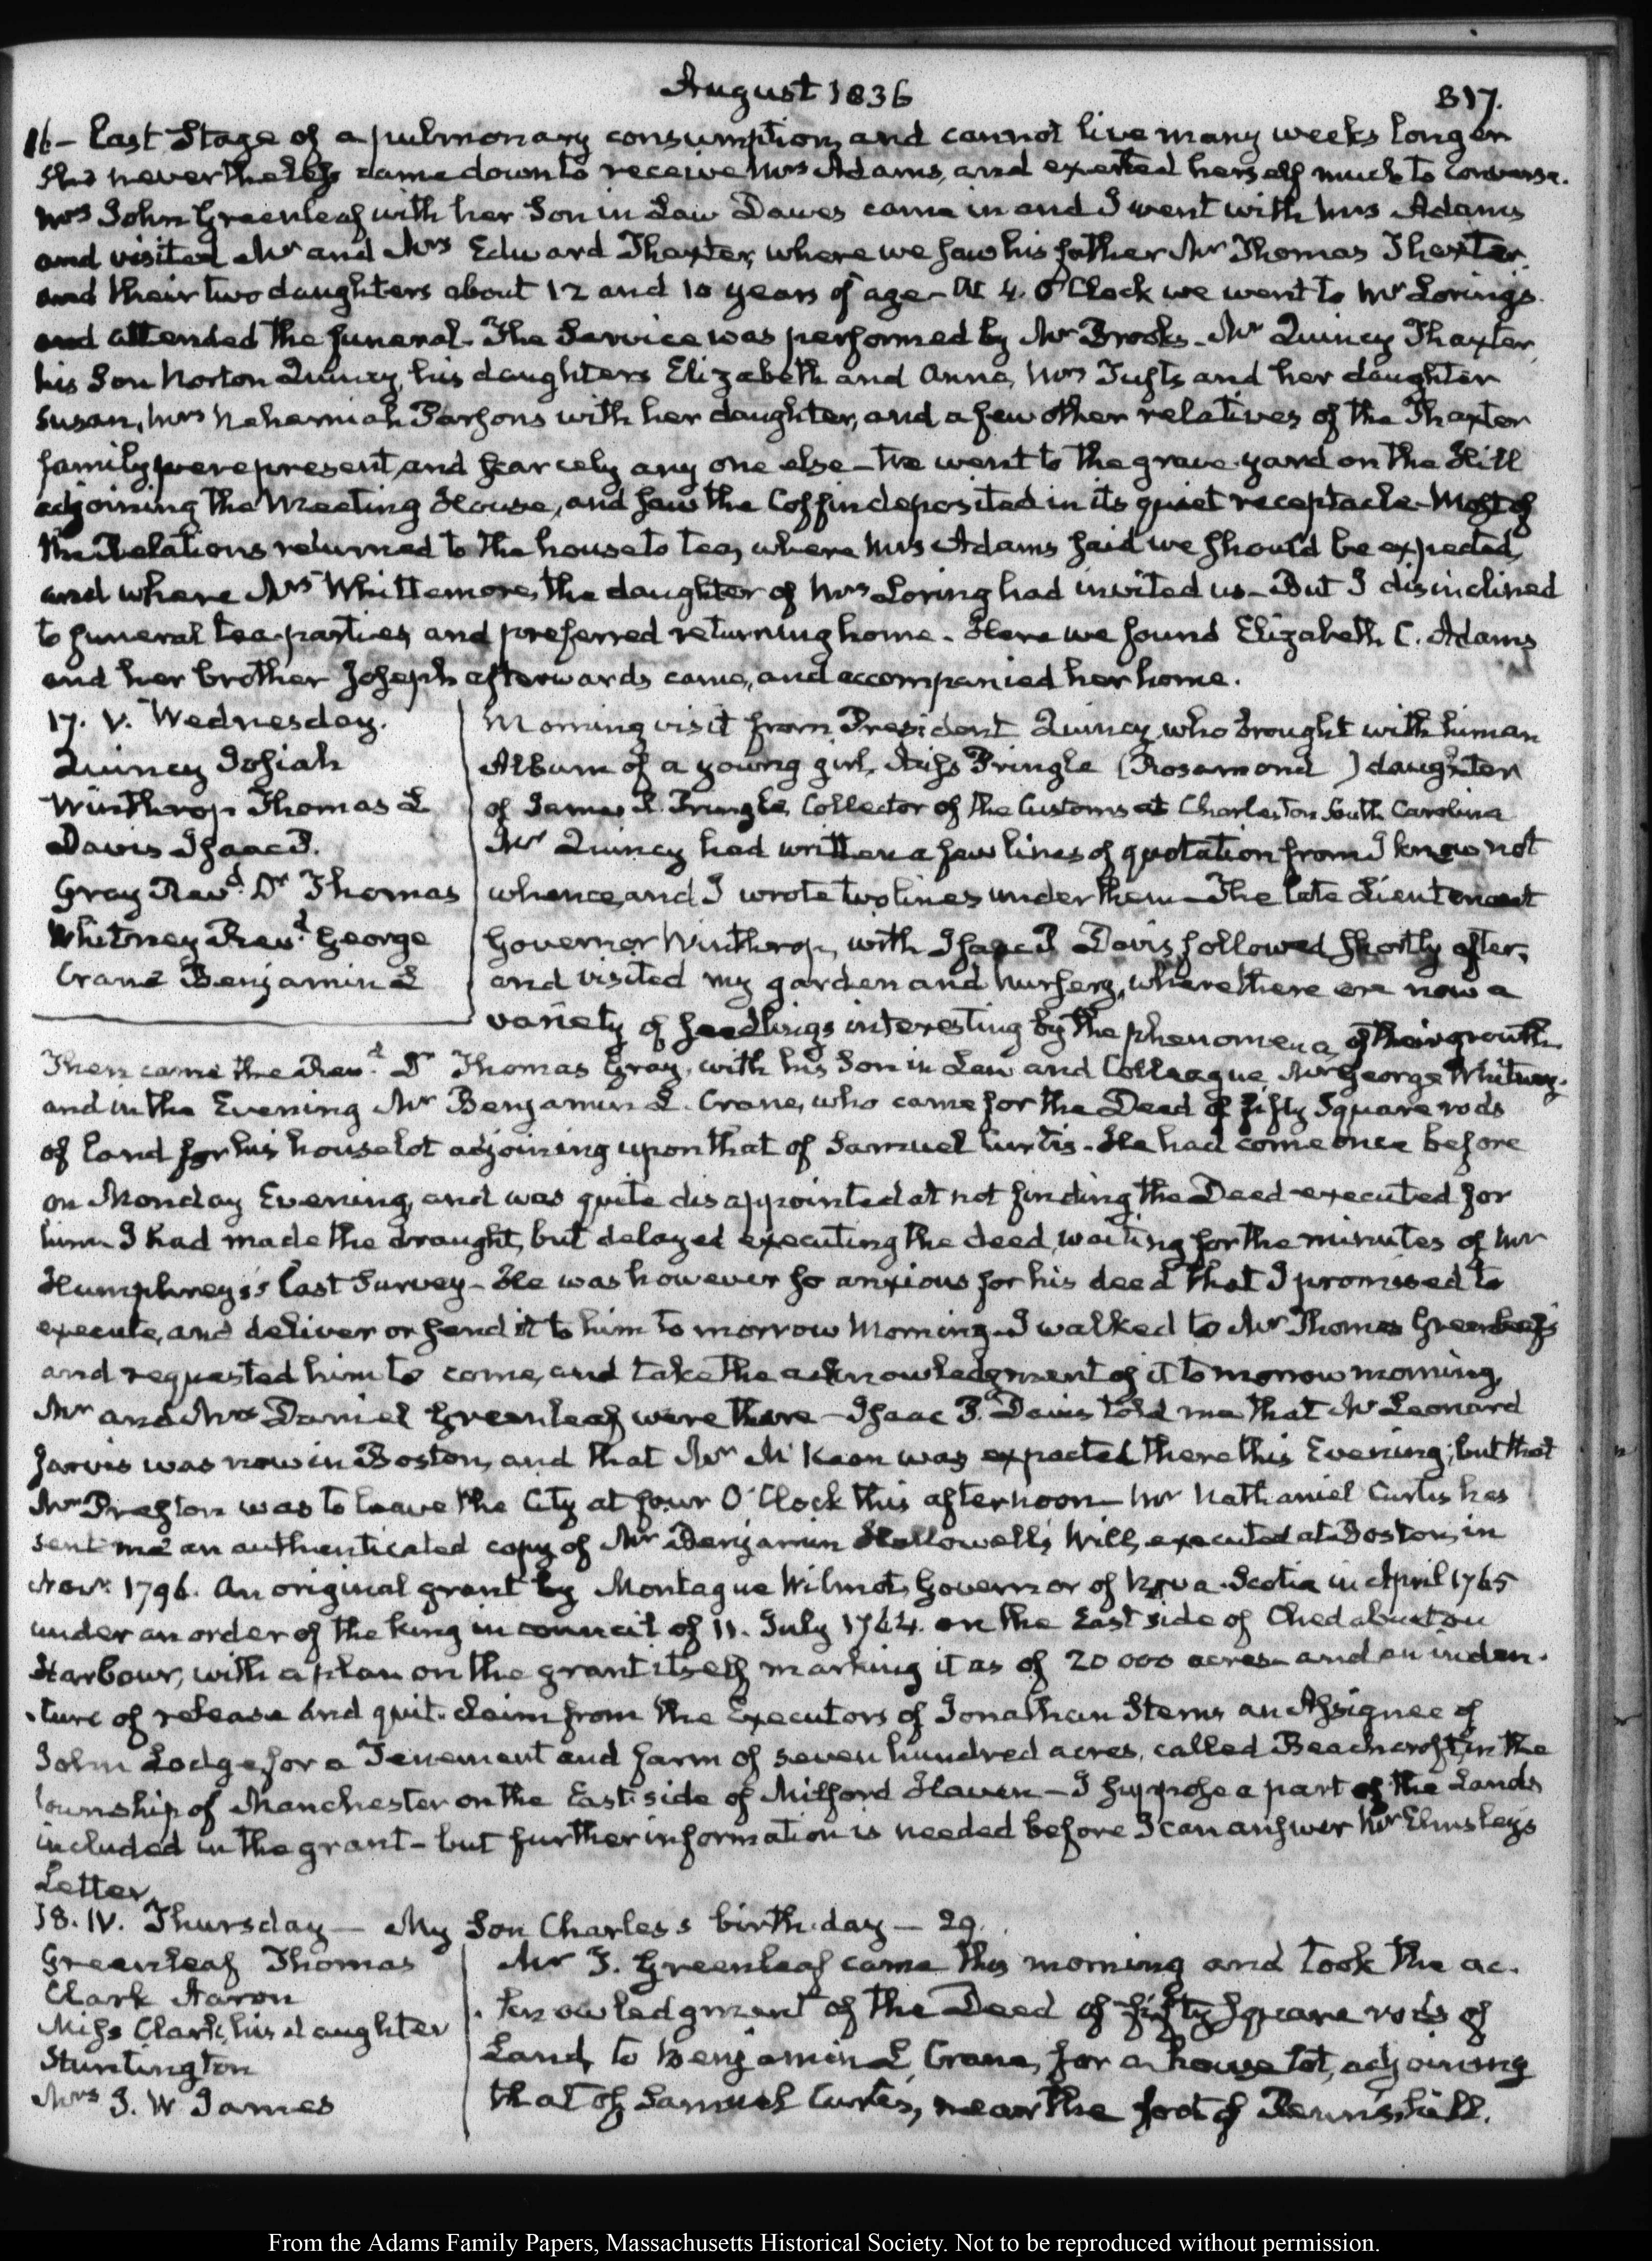 August 1836
317.
16 — last Stage of a pulmonary consumption, and cannot live many weeks longer
She nevertheless came down to receive Mrs Adams, and exerted herself much to converse.
Mrs John Greenleaf with her Son in Law Dawes came in and I went with Mrs Adams
and visited Mr and Mrs Edward Thaxter, where we saw his father Mr Thomas Thaxter,
and their two daughters about 12 and 10 years of age — At 4. O'Clock we went to Mr Loring's
and attended the funeral. The Service was performed by Mr Brooks. Mr Quincy Thaxter,
his Son Norton Quincy, his daughters Elizabeth and Anna, Mrs Tufts and her daughter
Susan, Mrs Nehemiah Parsons with her daughter, and a few other relatives of the Thaxter
family were present, and scarcely any one else — We went to the grave-yard on the Hill
adjoining the Meeting House, and saw the Coffin deposited in its quiet receptacle — Most of
the Relations returned to the house to tea, where Mrs Adams said we should be expected,
and where Mrs Whittemore, the daughter of Mrs Loring had invited us — But I disinclined
to funeral tea-parties, and preferred returning home. Here we found Elizabeth C. Adams
and her brother Joseph afterwards came, and accompanied her home.
17. V. Wednesday.
Quincy Josiah
Winthrop Thomas L
Davis Isaac P.
Gray Revd. Dr Thomas
Whitney Revd. George
Crane Benjamin L
Morning visit from President Quincy, who brought with him an
Album of a young girl, Miss Pringle (Rosamond ) daughter
of James R. Pringle, Collector of the Customs at Charleston South Carolina
Mr Quincy had written a few lines of quotation from I know not
whence, and I wrote two lines under them — The late Lieutenant
Governor Winthrop, with Isaac P. Davis, followed shortly after,
and visited my garden and nursery, where there are now a
variety of seedlings interesting by the phenomena of their growth.
Then came the Revd. Dr Thomas Gray, with his Son in Law and Colleague, Mr George Whitney.
and in the Evening Mr Benjamin L. Crane, who came for the Deed of fifty Square rods
of land for his house lot adjoining upon that of Samuel Curtis. He had come once before
on Monday Evening, and was quite disappointed at not finding the Deed executed for
him. I had made the draught, but delayed executing the deed, waiting for the minutes of Mr
Humphreys's last Survey — He was however so anxious for his deed that I promised to
execute, and deliver or send it to him to morrow Morning — I walked to Mr Thomas Greenleaf's
and requested him to come, and take the acknowledgment of it to morrow morning,
Mr and Mrs Daniel Greenleaf were there — Isaac P. Davis told me that Mr Leonard
Jarvis was now in Boston, and that Mr McKean was expected there this Evening; but that
Mr Preston was to leave the City at four O'Clock this afternoon — Mr Nathaniel Curtis has
sent me an authenticated copy of Mr Benjamin Hallowell's Will, executed at Boston, in
Novr. 1796. An original grant by Montague Wilmot, Governor of Nova-Scotia in April 1765
under an order of the King in council of 11. July 1764. on the East side of Chedabucton
Harbour, with a plan on the grant itself marking it as of 20 000 acres — and an inden-
-ture of release and quit-claim from the Executors of Jonathan Sterns an Assignee of
John Lodge, for a Tenement and farm of seven hundred acres, called Beachcroft, in the
township of Manchester on the East side of Milford Haven — I suppose a part of the Lands
included in the grant — but further information is needed before I can answer Mr Elmsley's
Letter,
18. IV. Thursday — My Son Charles's birth-day — 29.
Greenleaf Thomas
Clark Aaron
Miss Clark his daughter
Huntington
Mrs J. W James
Mr T. Greenleaf came this morning and took the ac-
-knowledgment of the Deed of fifty square rods of
Land, to Benjamin L, Crane, for a house lot, adjoining
that of Samuel Curtis, near the foot of Penn's hill.
From the Adams Family Papers, Massachusetts Historical Society. Not to be reproduced without permission.